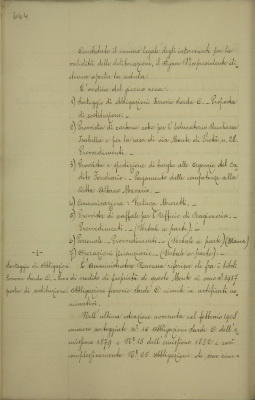 664
Constatato il numero legale degli intervenuti per la
validità delle deliberazioni, il Signor Vicepresidente di-
chiara aperta la seduta.
L'ordine del giorno reca:
1) Sorteggio di Obbligazioni ferrovie Sarde C. - Proposta
di sostituzione. -
2) Provvista di carbone coke per l'Educatorio Duchessa
Isabella e per la casa di via Monte di Pietà n. 32.
Provvedimenti. -
3) Provvista e spedizione di targhe alle Agenzie del Cre-
dito Fondiario - Pagamento delle competenze alla
Ditta Albano Macario. -
4) Comunicazione: Moretti. -
5) Provvista di scaffali per l'Ufficio di Ragioneria. -
Provvedimenti - (Verbale a parte) -
6) Personale - Provvedimenti - (Verbale a parte)
7) Operazioni finanziarie - (Verbale a parte) -
-1-
Sorteggio di Obbligazioni
L'Amministratore riferisce che fra i titoli
ferrovie Sarde C. - Pro-
di credito di proprietà di questo Monte vi sono n° 1975
posta di sostituzione
Obbligazioni ferrovie Sarde C vincolate in certificati no-
minativi.
Nell'ultima estrazione avvenuta nel febbraio 1908
vennero sorteggiate n° 16 Obbligazioni Sarde C dell'e-
missione 1879 e N° 19 dell'emissione 1882 e così
complessivamente N° 35 Obbligazioni che